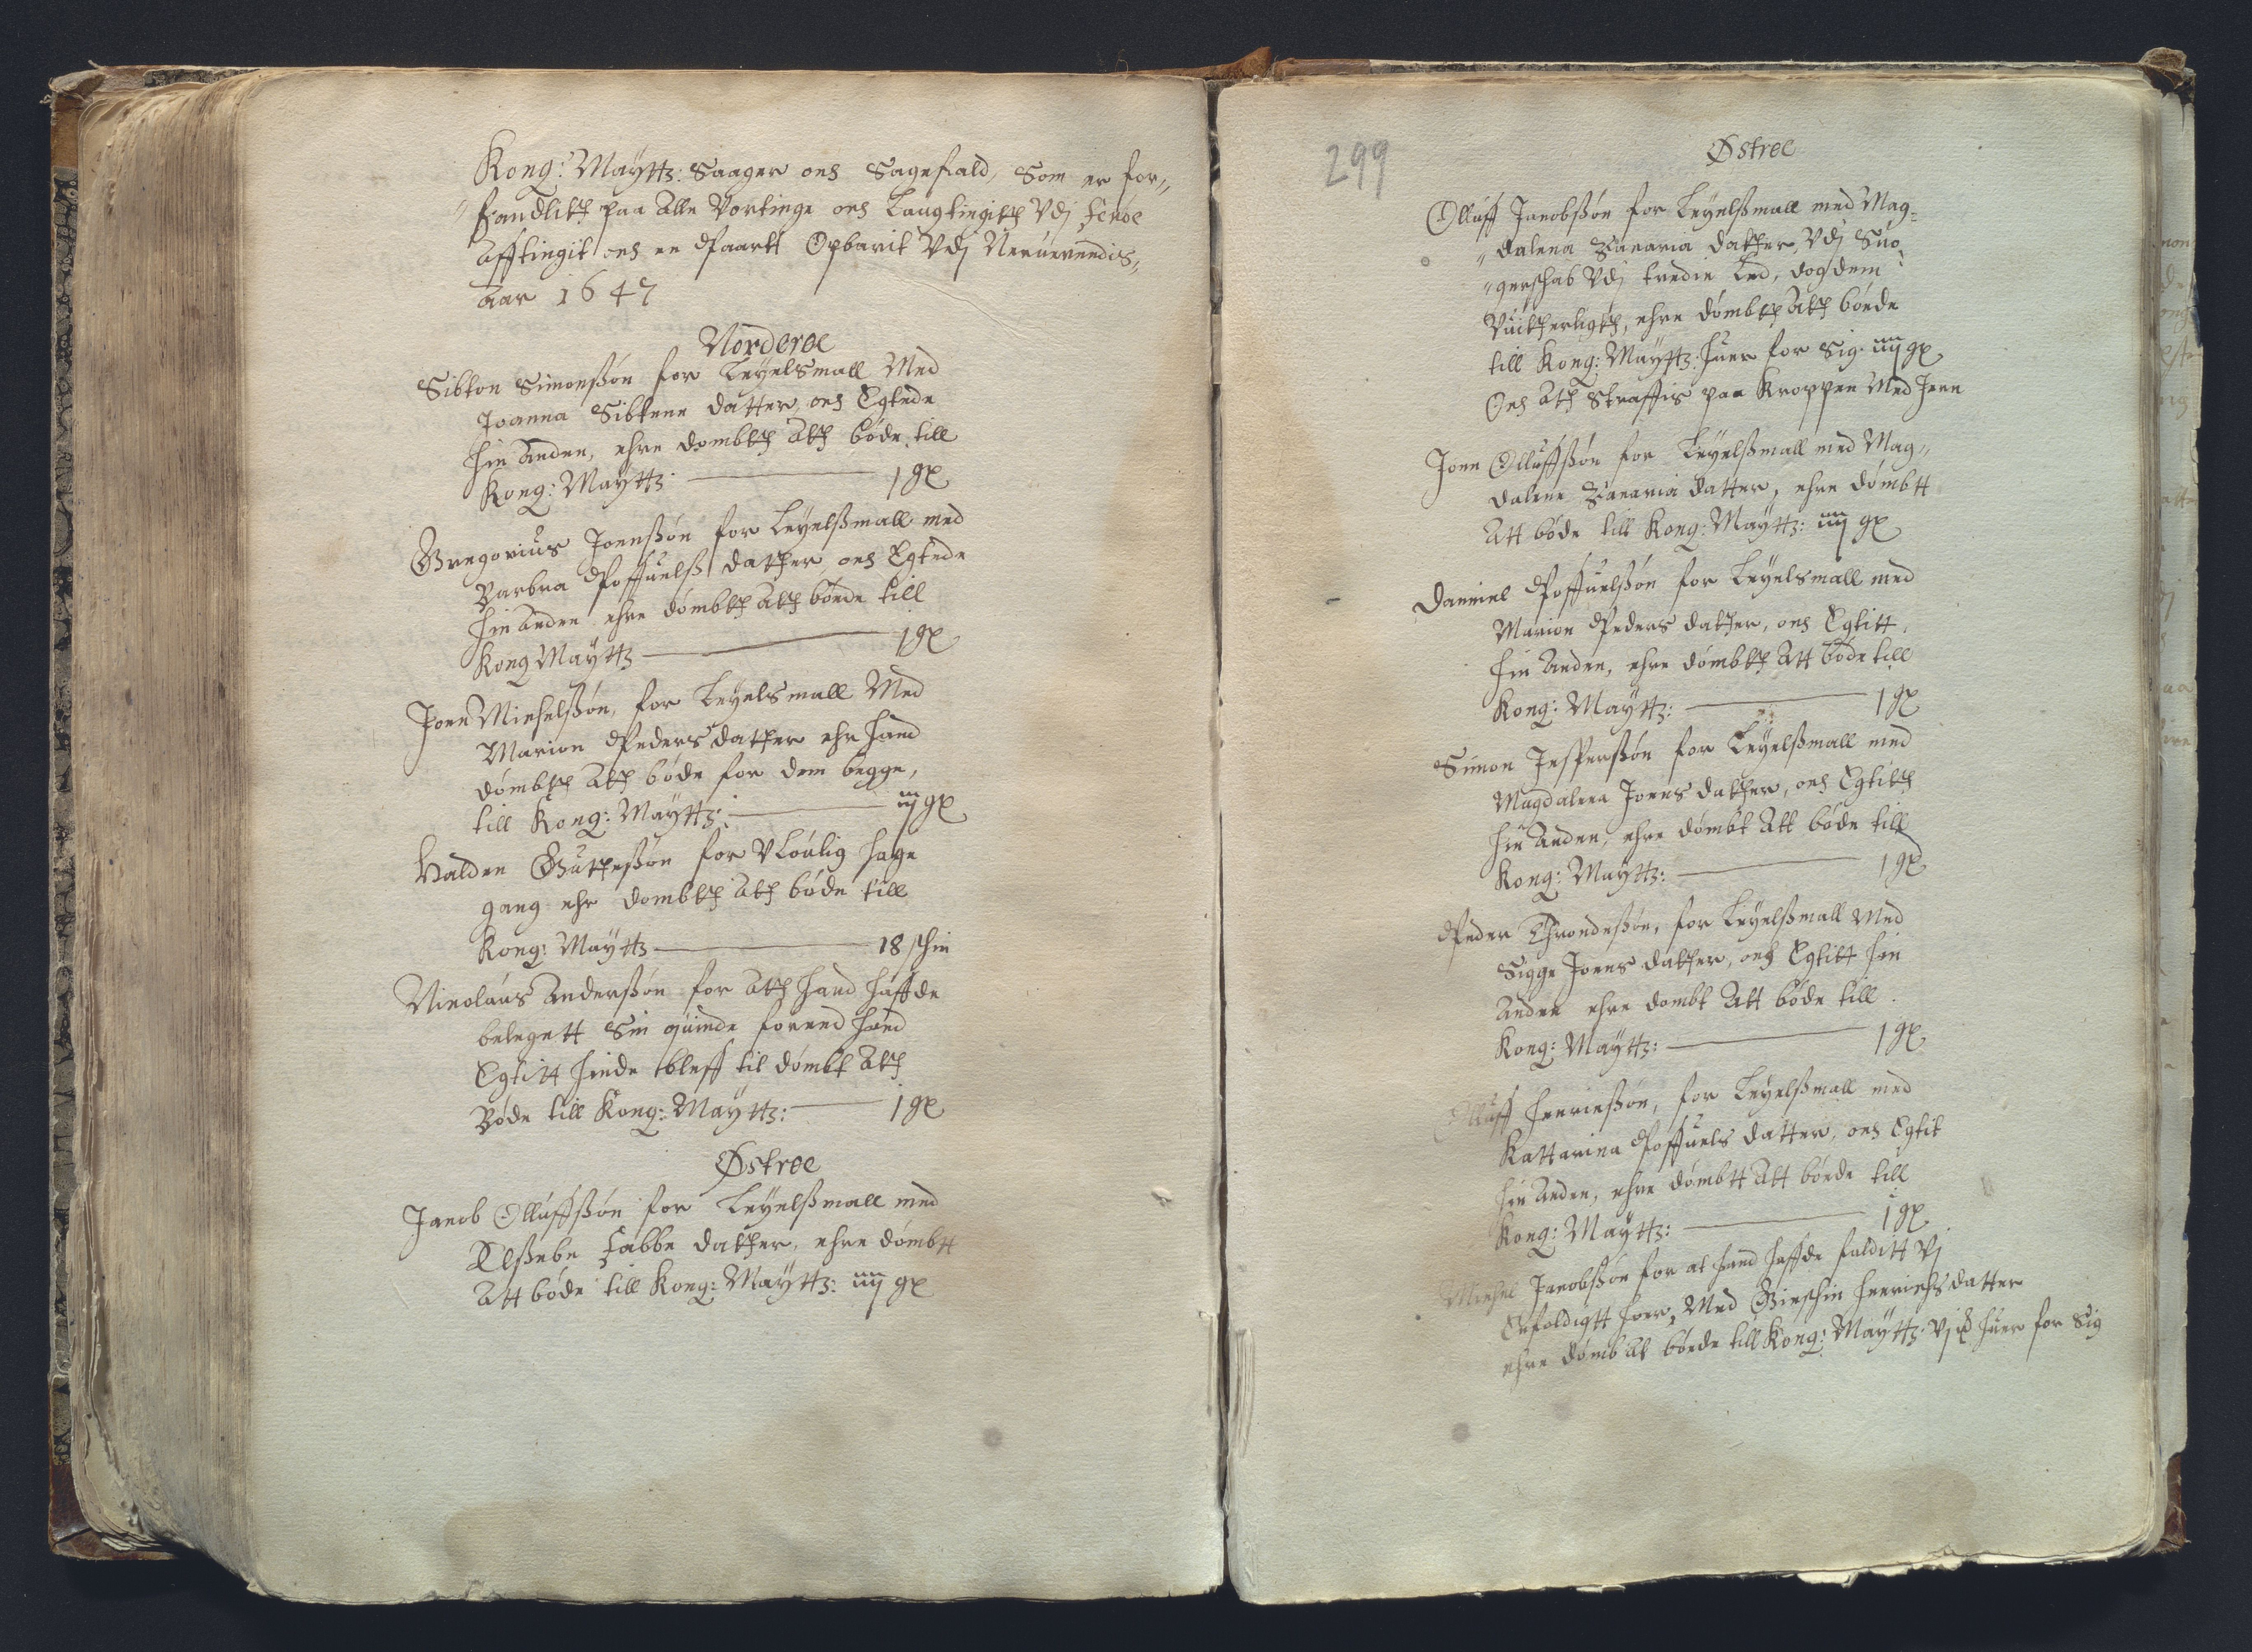 Kong: Maÿttz: Saager och Sagefald, Som er for,,
,, handlitt paa Alle Vortinge och Laugtingitt Vdj ferøe
Afftingit och en Paartt Opbarit Vdj Neruerendis,,
Aar 1647
Norderøe
Sibton Simonßøn for Leÿelsmall Med
Joanna Sibtene datter, och Egtede
hin Anden, ehre dombtt Att bøde till
Kong: Maÿttz: 1 gℓ
Gregorius Joenßøn for Leÿelßmall med
Barbra Poffuelß datter och Egtede
hin Anden ehre dømbtt Att bøede till
Kong Maÿttz 1 gℓ
Joen Michelßøn, for Leÿelsmall Med
Marion Peders datter ehr hand
dømbtt Att bøde for dem begge,
till Kong: Maÿttz: iiij gℓ
Halden Guttesßøn for Vloulig hage
gang ehr dombtt Att bøde till
Kong: Maÿttz 18 schin
Nicolaus Anderßøn for Att hand haffde
belegett Sin quinde forend hand
Egtitt hinde bleff til dømbt Att
Bøde till Kong: Maÿttz: 1 gℓ
Østrøe
Jacob Olluffßøn for Leÿelßmall med
Elßebe Jabbe datter, ehre dømbtt
Att bøde till Kong: Maÿttz: iiij gℓ
299
Østrøe
Olluff Jacobßøn for Leÿelßmall med Mag=
,, dalena Zacaria datter Vdj Suo
,, gerschab Vdj tredie Led, dog dem
Vuitterligtt, ehre dømbtt Att bøede
till Kong: Maÿttz: huer for Sig iiij gℓ
Och Att Straffis paa Kroppen Med Jern
Joen Olluffßøn for Leÿelßmall med Mag,,
dalene Zacaria datter, ehre dømbtt
Att bøde till Kong: Maÿttz: iiij gℓ
Danniel Poffuelßøn for Leÿelsmall med
Marion Peders datter, och Egtitt
hin Anden, ehre dømbtt Att bøde till
Kong: Maÿttz: 1 gℓ
Simon Jesperßøn for Leÿelßmall med
Magdalena Joens datter, och Egtitt
hin Anden, ehre dømbt Att bøde till
Kong: Maÿttz: 1 gℓ
Peder Throndeßøn, for Leÿelßmall Med
Sigge Joens datter, och Egtitt hin
Anden ehre dombt Att bøde till
Kong: Maÿttz: 1 gℓ
Olluff Henricßøn, for Leÿelßmall med
Kattarina Poffuels datter, och Egtit
hin Anden, ehre dømbtt Att bøede till
Kong: Maÿttz: 1 gℓ
Michel Jacobßøn for at hand haffde falditt Vj
Enfoldigtt hoer, Med Birschin Henrichs datter
ehre dømb At bøede till Kong: Maÿttz: Vj huer for Sig